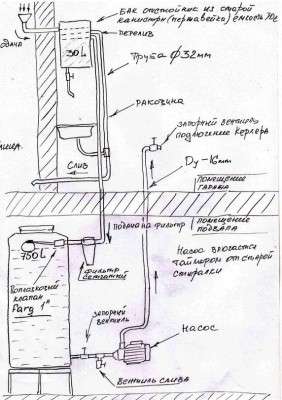 БАК ОТСТОЙНИК ИЗ СТАРОЙ
КАНИСТРЫ (НЕРЖАВЕЙКА) ЕМКОСТЬ
ПЕРЕЛИВ
30L
Труба Ф 32мм
РАКОВИНА
ЗАПОРНЫЙ ВЕНТИЛЬ
СЛИВ
Dy-16мм
ПОМЕЩЕНИЕ
ГАРАЖА
ПОДАЧА НА ФИЛЬТР
ПОМЕЩЕНИЕ
ПОДВАЛА
750L
Поплавковый
клапан
Farg 1"
ФИЛЬТР
СЕТЧАТЫЙ
НАСОС ВКЛЮЧАЕТСЯ
ТАЙМЕРОМ ОТ СТАРОЙ
СТИРАЛКИ
ЗАПОРНЫЙ
ВЕНТИЛЬ
НАСОС
ВЕНТИЛЬ СЛИВА